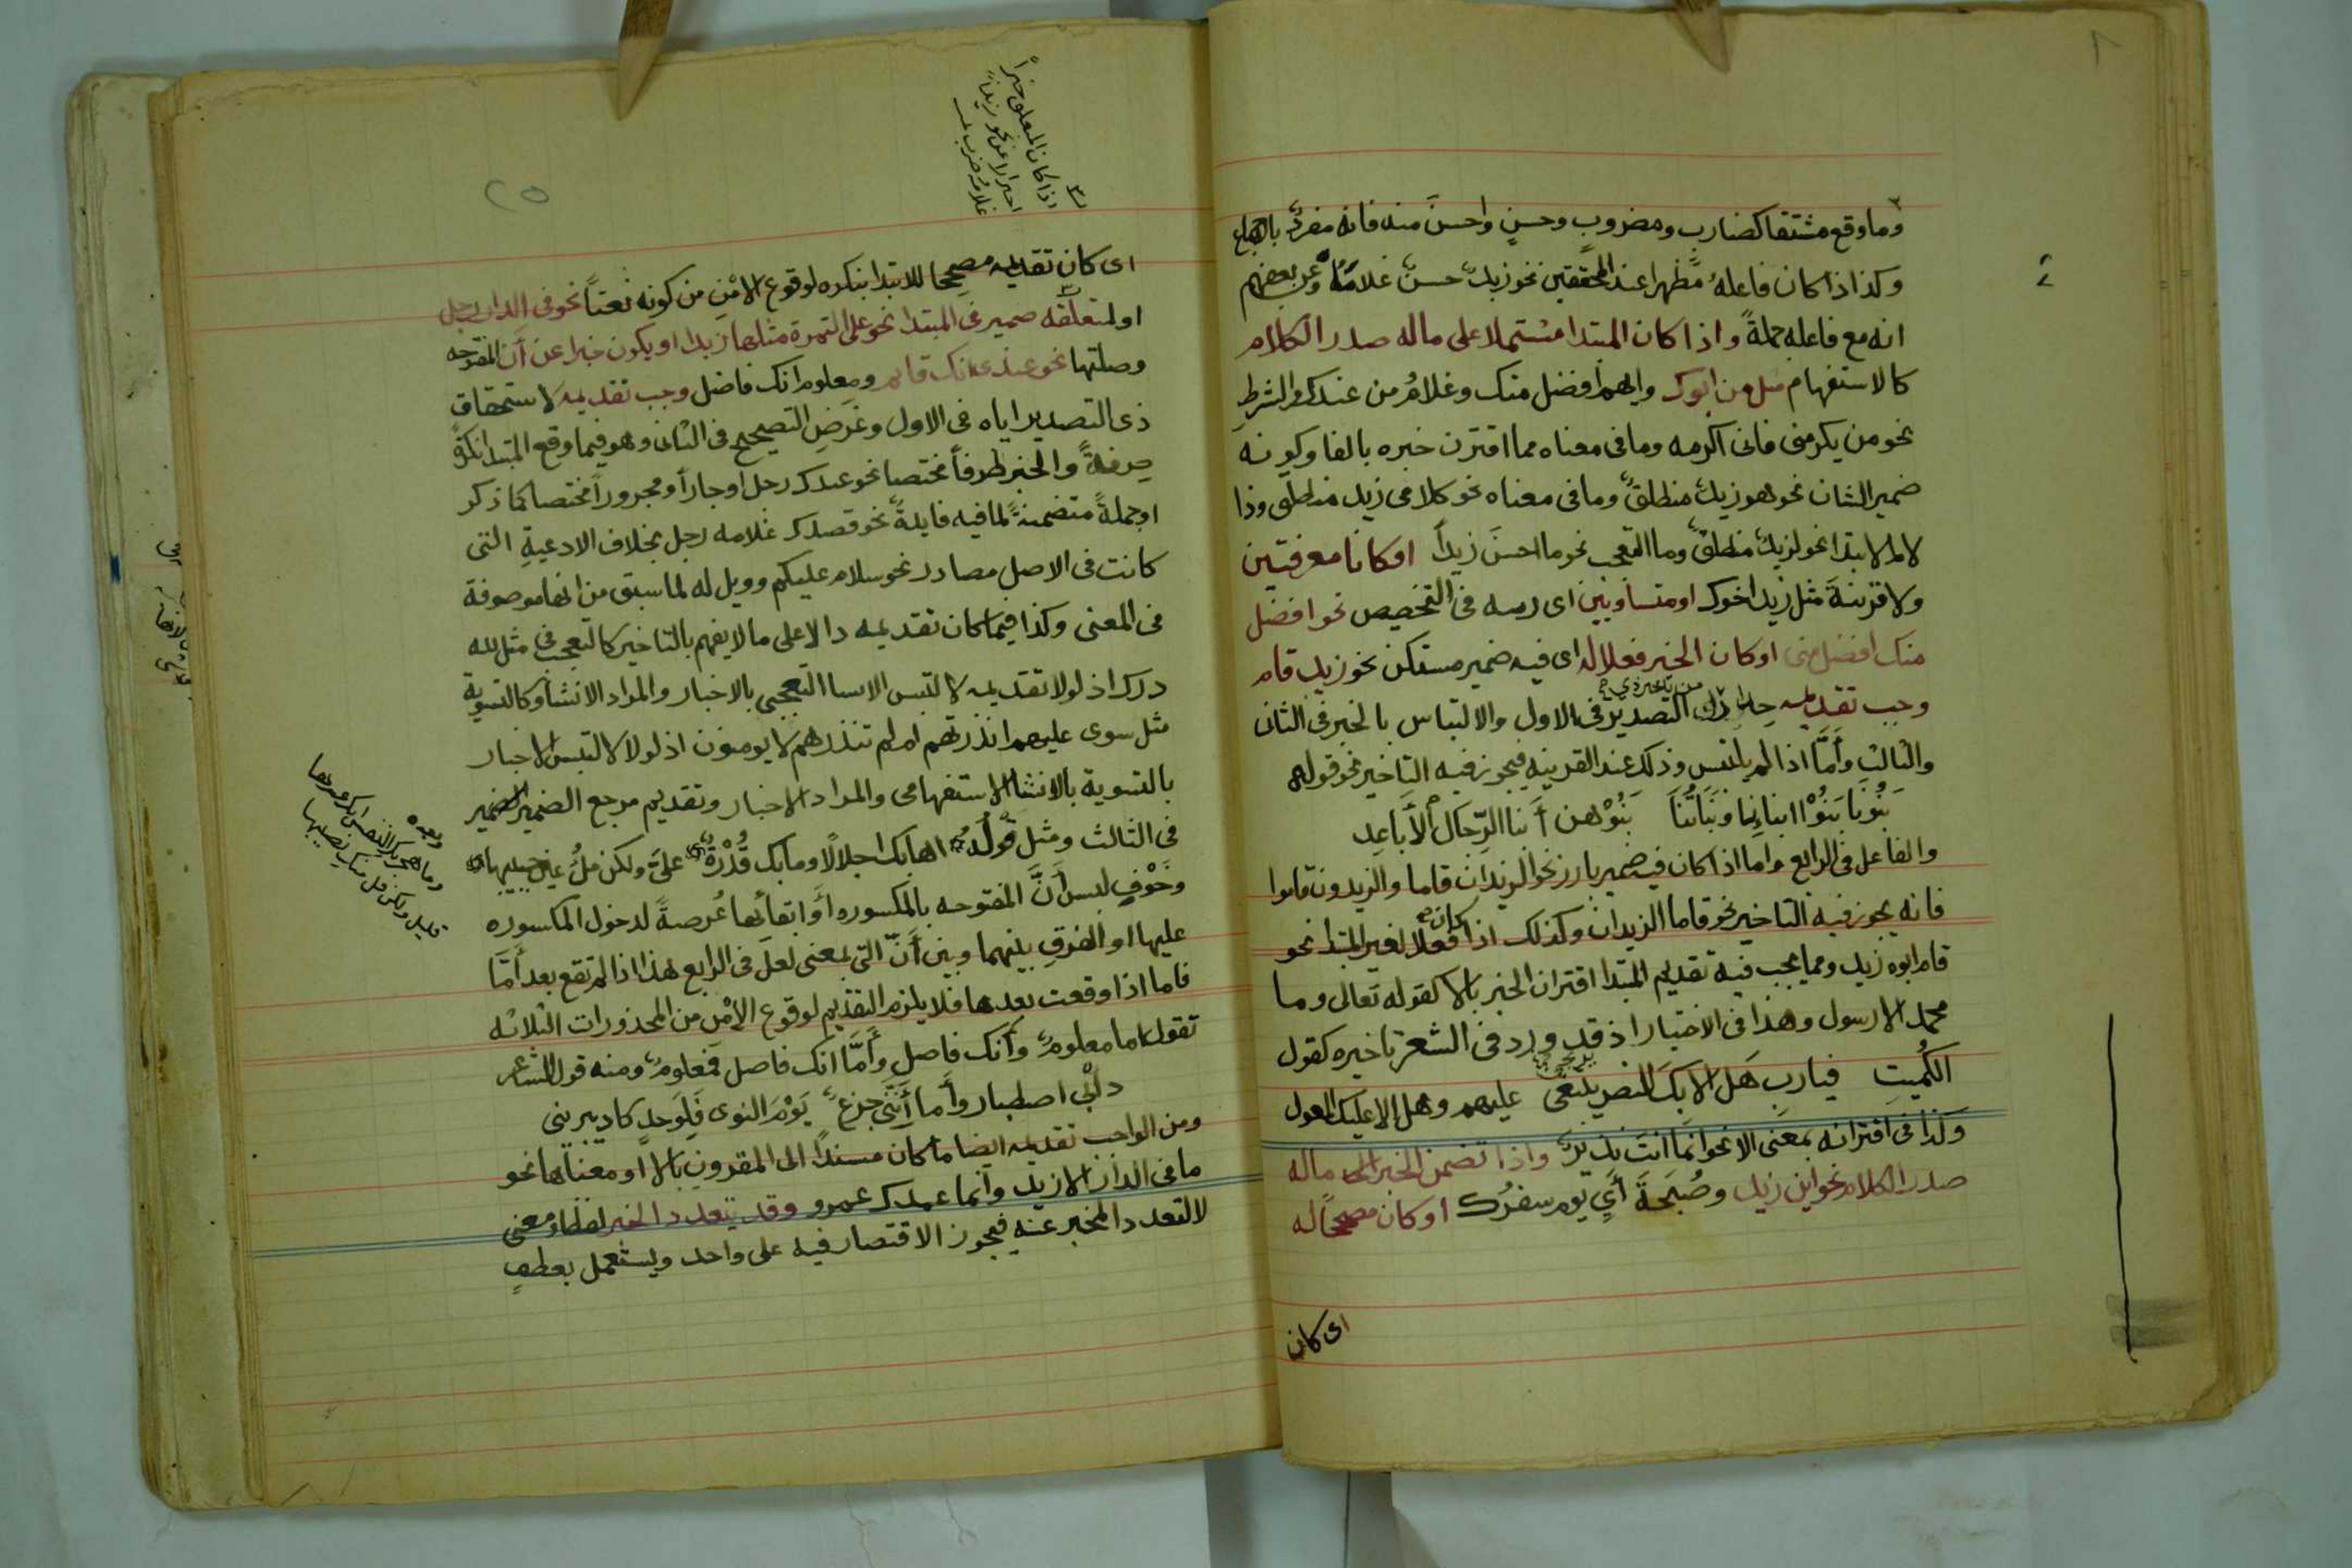 وما وقع مشتقا كضارب ومضروبٍ وحسنٍ واحسنَ منه فانه مفردٌ
وكذا اذا كان فاعلهُ مظهرا عند المحققين نحو زيدٌ حسنٌ غلامُهُ وعن بعضهم
انه مع فاعله جملةً واذا كان المبتدا مشتملا على ماله صدر الكلام
كالاستفهام مثل من ابوك وايهم افضل منك وغلامُ من عندك والشرطِ
نحو من يكرمنى فانى اكرمه وما فى معناه مما اقترن خبره بالفا وكونه
ضمير الشان نحو هو زيدٌ منطلقٌ وما فى معناه نحو كلامى زيد منطلق وذا
لام الابتدا نحو لزيدٌ منطلقٌ وما التعجب نحو ما احسنَ زيداً او كانا معرفتين
ولا قرينةَ مثل زيد اخوك او متساويين اى رسه فى التخصيص نحو افضل
منك افضل منى او كان الخبر فعلا له اى فيه ضمير مستكن نحو زيد قام
وجب تقديمه التصدير فى الاول والالتباس بالخبر فى الثانى
والثالث وأَمَّا اذا لم يلتبس وذلك عند القرينه فيجوز فيه التاخير نحو قولهم
بَنُونَا بَنُوْا ابنائِنا وبَنَاتُنَا بَنُوْهن أَبنا الرِّجال الأَبَاعِد
والفاعل فى الرابع واما اذا كان فيه ضمير بارز نحو الزيدان قاما والزيدون قاموا
فانه يجوز فيه التاخير نحو قاما الزيدان وكذلك اذا كان فعلا لغير المبتدا نحو
قام ابوه زيد ومما يجب فيه تقديم المبتدا اقتران الخبر بالا كقوله تعالى وما
محمد الا رسول وهذا فى الاختيار اذ قد ورد فى الشعر تاخيره كقول
الكُميتِ فيارب هَل الا بكَ النصر يبتغى عليهم وهل الا عليك المعول
وكذا فى اقترانه بمعنى الا نحو انما انت نذيرٌ واذا تضمن الخبر ماله
صدر الكلام نحو اين زيد وصُبْحَةَ أَىِّ يوم سفرُك او كان مصححًا له
اى كان
٢٥
اذا كان المتعلق خبراً
احترا لا عن نحو زيداً
غلامه ضرب
اى كان تقديمه مصححا للابتدا بنكره لوقوع الامْنِ من كونه نعتاً نحو فى الدار رجل
او لمتعلقه ضمير فى المبتدا نحو على التمرة مثلها زبدا او يكون خبرا عن أَنَّ المفتوحه
وصلتها نحو عندى انك قايم ومعلوم انك فاضل وجب تقديمه لاستحقاق
ذى التصدير اياه فى الاول وغَرَضِ التصحيح فى الثانى وهو فيما وقع المبتدا نكرةً
صِرفةً والخبر ظرفاً مختصا نحو عندك رجل او جاراً ومجروراً مختصا كما ذكر
او جملةً متضمنةً لما فيه فايدةٌ نحو قصدك غلامه رجل بخلاف الادعيةِ التى
كانت فى الاصل مصادر نحو سلام عليكم وويل له لما سبق من انها موصوفة
فى المعنى وكذا فيما كان تقديمه دالا على ما لا يفهم بالتاخير كالتعجب فى مثل لله
درك اذ لولا تقديمه لالتبس الانشا التعجبى بالاخبار والمراد الانشا وكالتسوية
مثل سوى عليهم انذرتهم ام لم تنذرهم لا يومنون اذ لولا لالتبس الاخبار
بالتسوية بالانشا الاستفهامى والمراد الاخبار وتقديم مرجع الضمير الضمير
فى الثالث ومثل قولُه اهابك اجلالًا ومابك قُدْرَةٌ علىَّ ولكن ملُ عين حبيبها
وخَوْفٍ لبس أَنَّ المفتوحه بالمكسوره أَو ابقائها عُرصةً لدخول المكسوره
عليها او الفرقِ بينهما وبين أَنَّ التى بمعنى لعل فى الرابع هذا اذا لم تقع بعد أَمَّا
فاما اذا وقعت بعدها فلا يلزم التقديم لوقوع الأمْنِ من المحذورات الثلاثه
تقول اما معلومٌ وأَنك فاضل وأَمَّا انك فاضل فمعلومٌ ومنه قول الشاعر
دأبى اصطبار وأَما أَنَّنى جزعٌ يَوْمَ النوى فَلِوَجدٍ كاد يبرينى
ومن الواجب تقديمه ايضا ما كان مسنداً الى المقرون بالا او معناها نحو
ما فى الدار الا زيد وانما عندك عمرو وقد يتعدد الخبر لفظا ومعنى
لا لتعدد المخبر عنه فيجوز الاقتصار فيه على واحد ويستعمل بعطفٍ